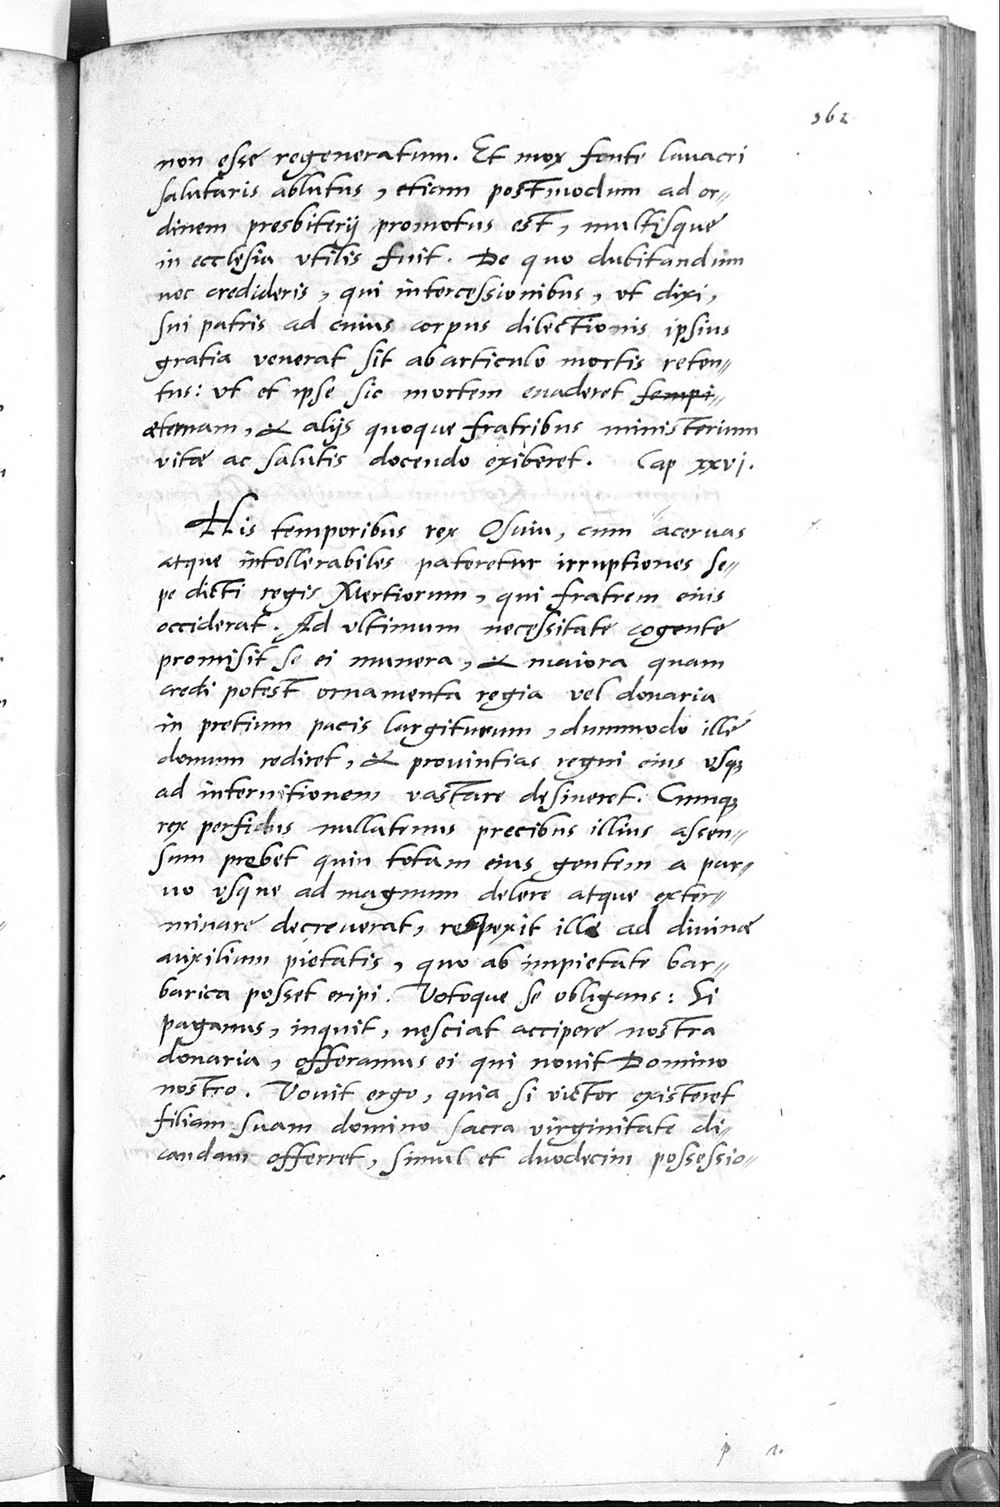 362
non esse regeneratum. Et mox fonte lauacri
salutaris ablutus, etiam postmodum ad or=
dinem presbiterij promotus est, multisque
in ecclesia vtilis fuit. De quo dubitandum
nec credideris, qui intercessionibus, vt dixi,
sui patris ad cuius corpus dilectionis ipsius
gratia venerat sit ab articulo mortis reten=
tus: vt et ipse sic mortem euaderet sempi=
æternam, & alijs quoque fratribus ministerium
vitæ ac salutis docendo exiberet. Cap xxvj.
His temporibus rex Osuiu, cum acervas
atque intollerabiles pateretur irruptiones se=
pe dicti regis Mertiorum, qui fratrem eius
occiderat. Ad vltimum necessitate cogente
promisit se ei munera, & maiora quam
credi potest ornamenta regia vel donaria
in pretium pacis largiturum, dummodo ille
domum rediret, & prouintias regni eius vsq;
ad internitionem vastare desineret. Cumq;
rex perfidus nullatenus precibus illius assen=
sum prebet quin totam eius gentem a par=
uo vsque ad magnum delere atque exter=
minare decreuerat, respexit ille ad diuinæ
auxilium pietatis, quo ab impietate bar=
barica posset eripi. Votoque se obligans: Si
paganus, inquit, nesciat accipere nostra
donaria, offeramus ei qui nouit Domino
nostro. Vouit ergo, quia si victor existeret
filiam suam domino sacra virginitate di=
candam offerret, simul et duodecim possessio=
p 2.